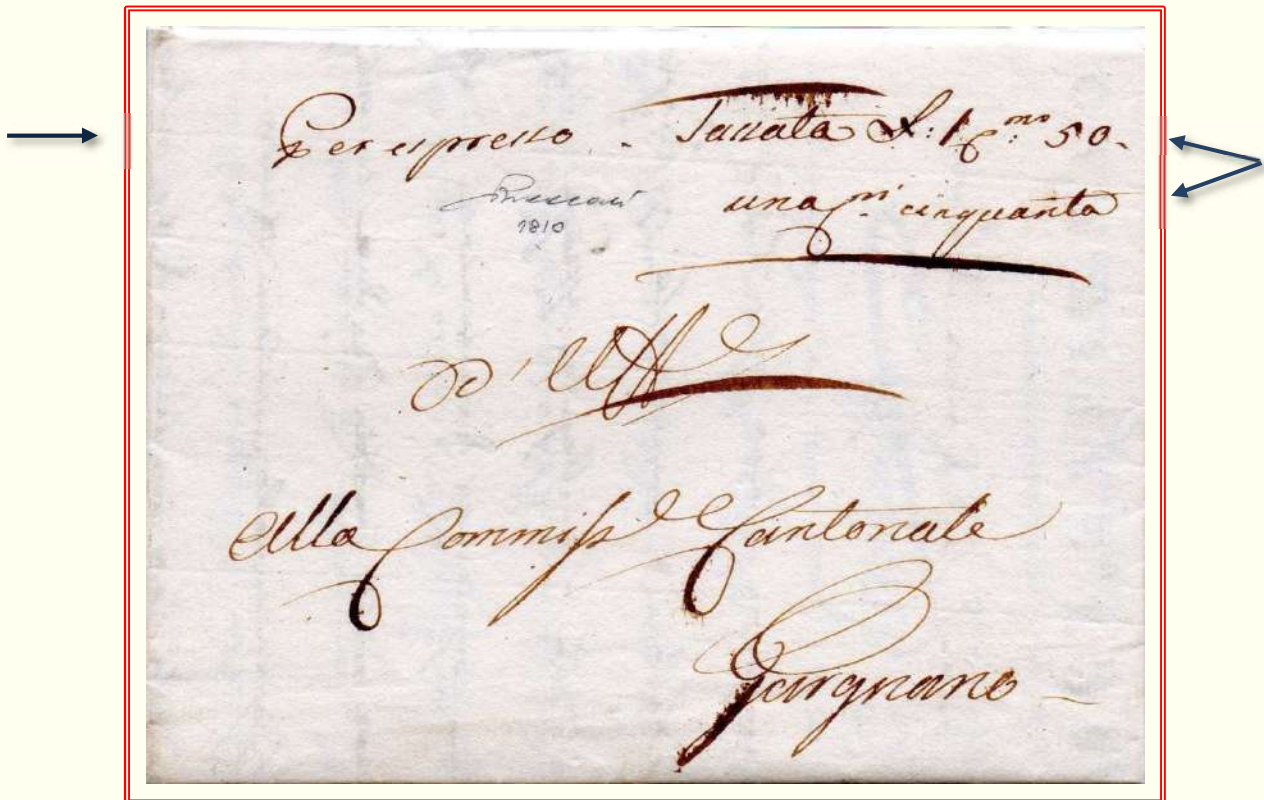 Per espresso. - Tassata L: 1 C.mi 50.
una C.mi cinquanta
1810
D'Uff.
Alla Commiss.e Cantonale
Gargnano